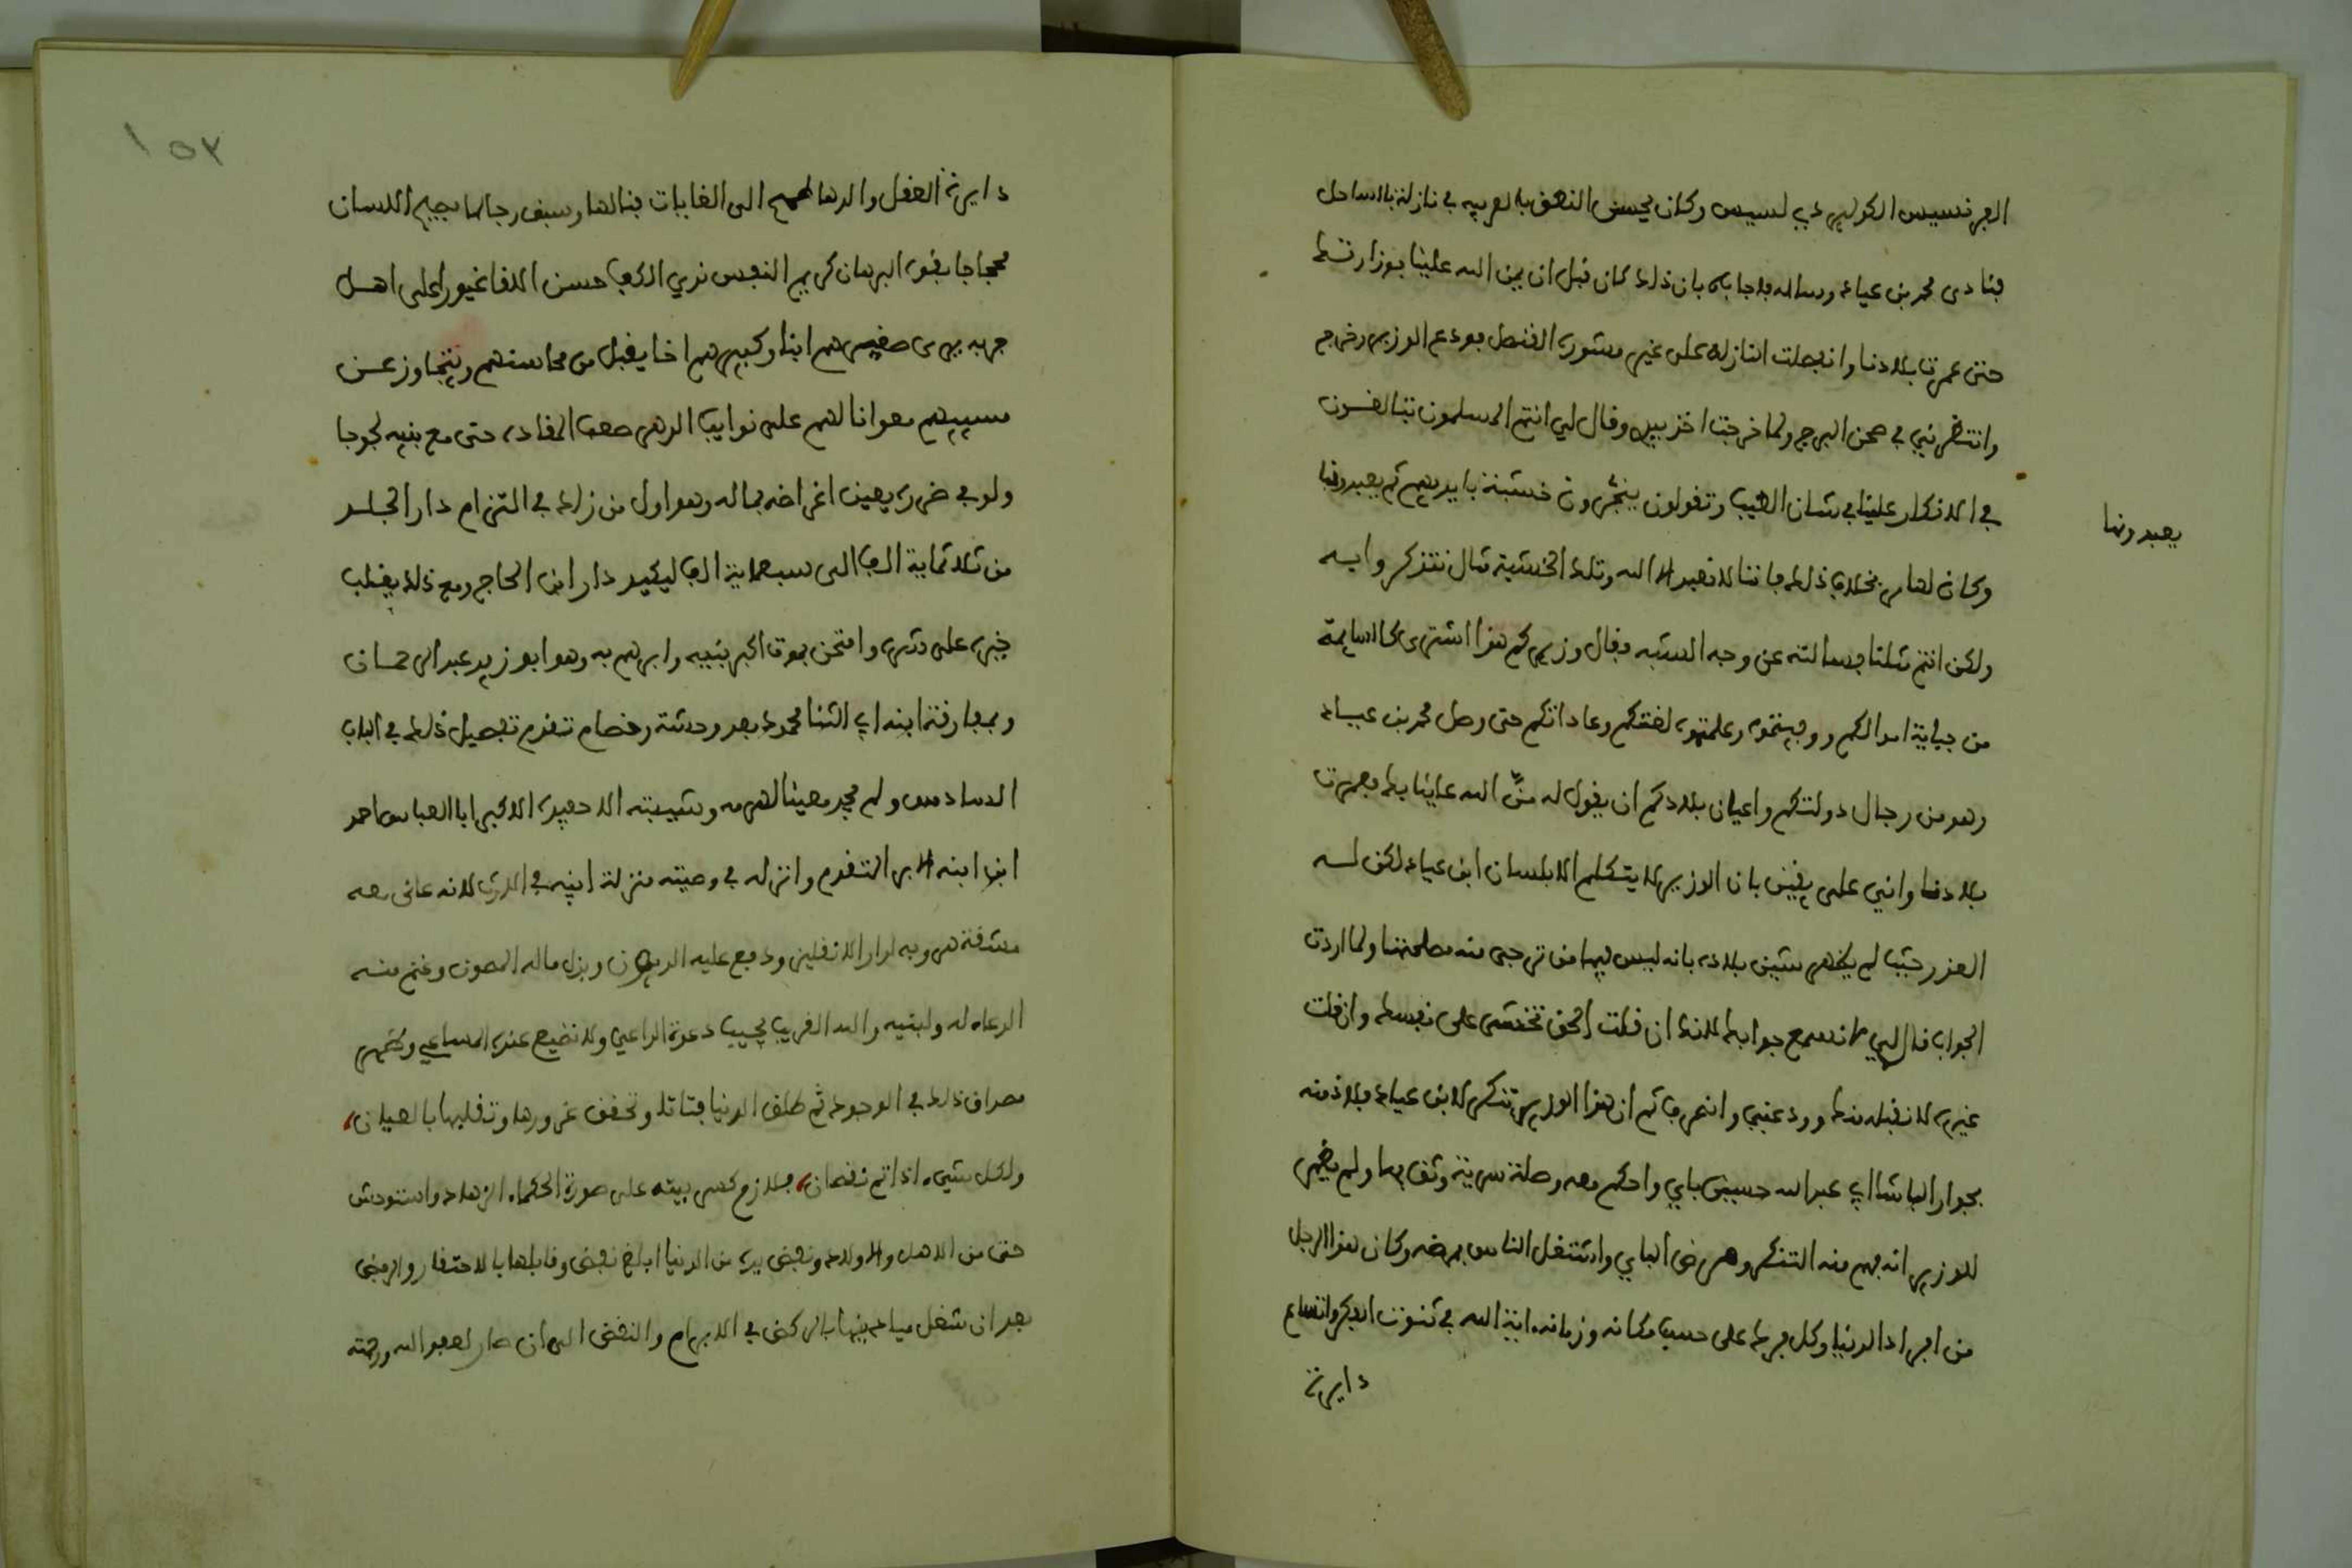 الفرنسيس الكولير دي لسيس وكان يحسن النطق بالعربيه في نازلة بالساحل
فنادى محمد بن عياد وساله فاجابه بان ذلك كان قبل ان يمن الله علينا بوزارتك
حتى عمرت بلادنا وانفصلت النازلة على غير مشورة القنصل فودع الوزير وخرج
وانتظرني في صحن البرج ولما خرجت اخذ بيدي وقال لي انتم المسلمون تبالغون
في الانكار علينا في شان الصليب وتقولون ينجرون خشبة بايديهم ثم يعبدونها
يعبدونها
وكان لهاس بخلاف ذلك فاننا لا نعبد الا الله وتلك الخشبة تمثال نتذكر وايه
ولكن انتم مثلنا فسالته عن وجه الشبه فقال وزيركم هذا اشترى كالسايمة
من جباية اموالكم وربيتموه وعلمتموه لغتكم وعاداتكم حتى وصل محمد بن عياد
وهو من رجال دولتكم واعيان بلادكم ان يقول له منّ الله علينا بك فعمرت
بلادنا واني على يقين بان الوزير لا يتكلم الا بلسان ابن عياد لكن لسه
العذر حيث لم يظهر شين بلاده بانه ليس فيها من ترجى منه مصلحتنا ولما اردت
الجواب قال لي لا نسمع جوابك لانك ان قلت الحق تخشى على نفسك وان قلت
غيره لا نقبله منك وودعني وانصرف ثم ان هذا الوزير تنكر لابن عياد فلاذ منه
بجوار الباشا ابي عبد الله حسين باي واحكم معه وصلة سرية وثق بها ولم يظهر
للوزير انه فهم منه التنكر ومرض الباي واشتغل الناس بمرضه وكان هذا الرجل
من افراد الدنيا وكل فرد على حسب مكانه وزمانه اية الله في تنوب الفكر واتساع
دايرة
١٥٣
دايرة العقل والدها طمح الى الغايات فنالها وسبق رجالها فصيح اللسان
محجاجا بقوة البرهان كريم النفس ندي الكف حسن اللقا غيورا على اهل
جربه يرى صغيرهم ابنا وكبيرهم اخا يقبل من محاسنهم ويتجاوز عن
مسييهم معوانا لهم على نوايب الدهر صعب المقادة حتى مع بنيه لجوجا
ولو في ضرره يعين اغراضه بماله وهو اول من زاد في التزام دار الجلد
من ثلاثماية الف الى سبعماية الف ليكيد دار ابن الحاج ومع ذلك يغلب
خيره على شره وامتحن بموت اكبر بنيه وابرهم به وهو ابو زيد عبد الرحمان
وبمفارقة ابنه ابي الثنا محمود بعد وحشة وخصام تقدم تفصيل ذلك في الباب
السادس ولم يجد معينا لهرمه وشيبته الا حفيده الاكبر ابا العباس احمد
ابن ابنه البر المتقدم وانزله في وصيته منزلة ابيه في الارث لانه عانى معه
مشقة هروبه لدار الانقليز ودفع عليه الديون وبذل ماله المصون وغنم منه
الدعاء له ولبنيه والله القريب يجيب دعوة الداعي ولا تضيع عنده المساعي وظهر
مصداق ذلك في الوجود ثم طلق الدنيا بتاتا وتحقق غرورها وتقلبها بالعيان
ولكل شيء اذا تم نقصان فلازم كسر بيته على صورة الحكماء الزهاد واستوحش
حتى من الاهل والاولاد ونفض يده من الدنيا ابلغ نفض وقابلها بالاحتقار والرفض
بعد ان شغل مياد ينها بالركض في الابرام والنقض الى ان صار لعفو الله ورحمته